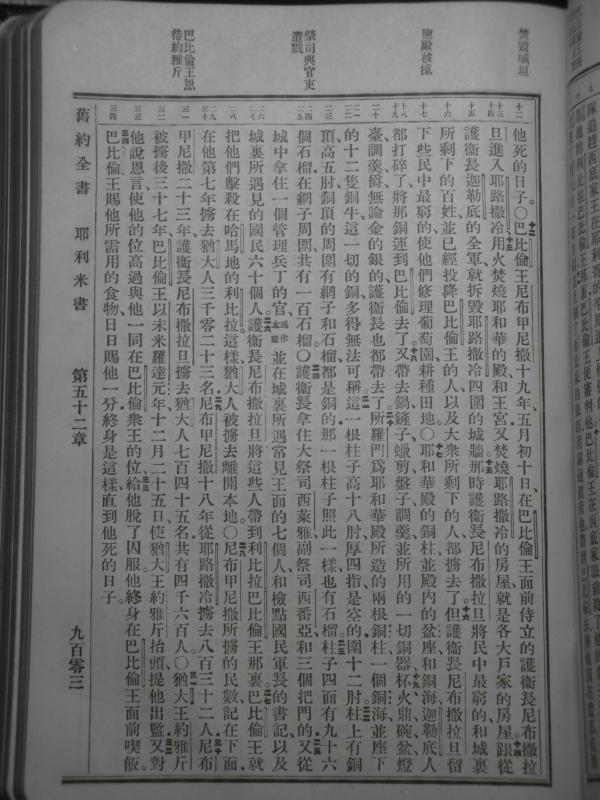 焚毀城垣
聖殿被掠
祭司與官吏
遭戮
巴比倫王恩
待約雅斤
他死的日子○巴比倫王尼布甲尼撒十九年五月初十日在巴比倫王面前侍立的護衛長尼布撒拉
旦進入耶路撒冷用火焚燒耶和華的殿和王宮又焚燒耶路撒冷的房屋就是各大戶家的房屋跟從
護衛長迦勒底的全軍就拆毀耶路撒冷四圍的城牆那時護衛長尼布撒拉旦將民中最窮的和城裏
所剩下的百姓並已經投降巴比倫王的人以及大衆所剩下的人都擄去了但護衛長尼布撒拉旦留
下些民中最窮的使他們修理葡萄園耕種田地○耶和華殿的銅柱並殿內的盆座和銅海迦勒底人
都打碎了將那銅運到巴比倫去了又帶去鍋鏟子蠟剪盤子調羹並所用的一切銅器杯火鼎碗盆燈
臺調羹爵無論金的銀的護衛長也都帶去了所羅門爲耶和華殿所造的兩根銅柱一個銅海並座下
的十二隻銅牛這一切的銅多得無法可稱這一根柱子高十八肘厚四指是空的圍十二肘柱上有銅
頂高五肘銅頂的周圍有網子和石榴都是銅的那一根柱子照此一樣也有石榴柱子四面有九十六
個石榴在網子周圍共有一百石榴○護衛長拿住大祭司西萊雅副祭司西番亞和三個把門的又從
城中拿住一個管理兵丁的官或作太監並在城裏所遇常見王面的七個人和檢點國民軍長的書記以及
城裏所遇見的國民六十個人護衛長尼布撒拉旦將這些人帶到利比拉巴比倫王那裏巴比倫王就
把他們擊殺在哈馬地的利比拉這樣猶大人被擄去離開本地○尼布甲尼撒所擄的民數記在下面
在他第七年擄去猶大人三千零二十三名尼布甲尼撒十八年從耶路撒冷擄去八百三十二人尼布
甲尼撒二十三年護衛長尼布撒拉旦擄去猶大人七百四十五名共有四千六百人○猶大王約雅斤
被擄後三十七年巴比倫王以未米羅達元年十二月二十五日使猶大王約雅斤抬頭提他出監又對
他說恩言使他的位高過與他一同在巴比倫衆王的位給他脫了囚服他終身在巴比倫王面前喫飯
巴比倫王賜他所需用的食物日日賜他一分終身是這樣直到他死的日子
舊約全書 耶利米書 第五十二章 九百零三